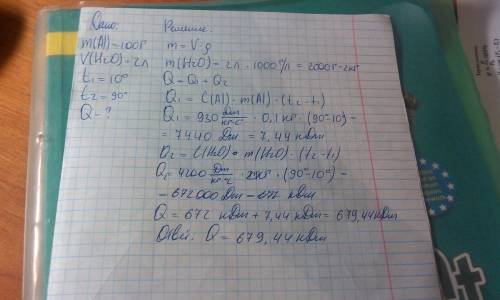 Дано:
m(Al)=100г
V(H2O)=2л
t1=10°
t2=90°
Q-?
Решение.
m=V·ρ
m(H2O)=2л·1000г/л=2000г=2кг
Q=Q1+Q2
Q1=C(Al)·m(Al)·(t2-t1)
Q1=930 Дж/кг·С°·0,1кг·(90°-10)=
=7440 Дж=7,44 кДж
Q2=C(H2O)·m(H2O)·(t2-t1)
=672000 Дж=672 кДж
Q=672 кДж+7,44кДж=679,44кДж
Ответ: Q=679,44кДж